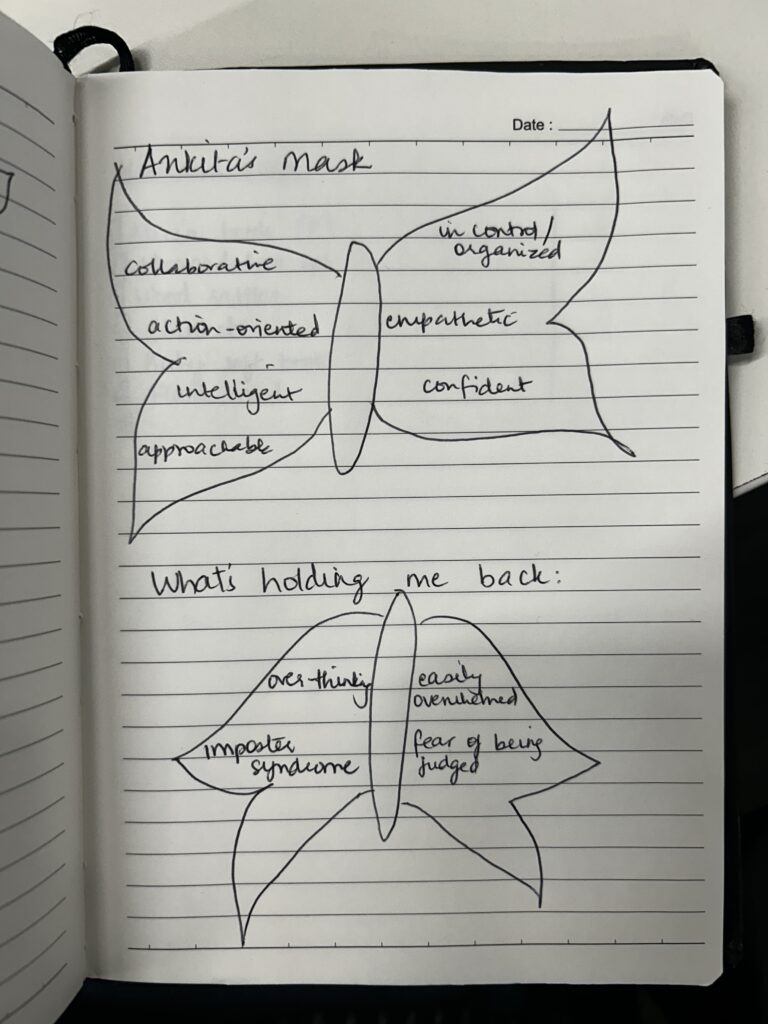 Date :
Ankita's Mask
collaborative
action-oriented
intelligent
approachable
in control/
organized
empathetic
confident
What's holding me back:
over-thinking
imposter
syndrome
easily
overwhelmed
fear of being
judged